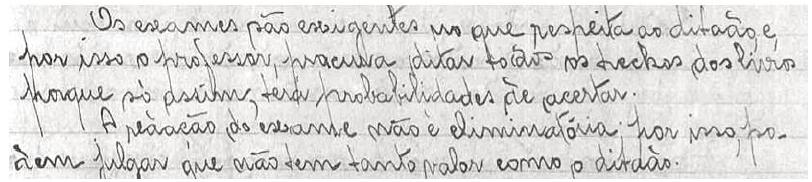 Os exames são exigentes no que respeita ao ditado, e
por isso o professor, procura ditar todos os trechos dos livros
porque só assim, terá probabilidades de acertar.
A redacção do exame não é eliminatória: por isso, po-
dem julgar que não tem tanto valor como o ditado.